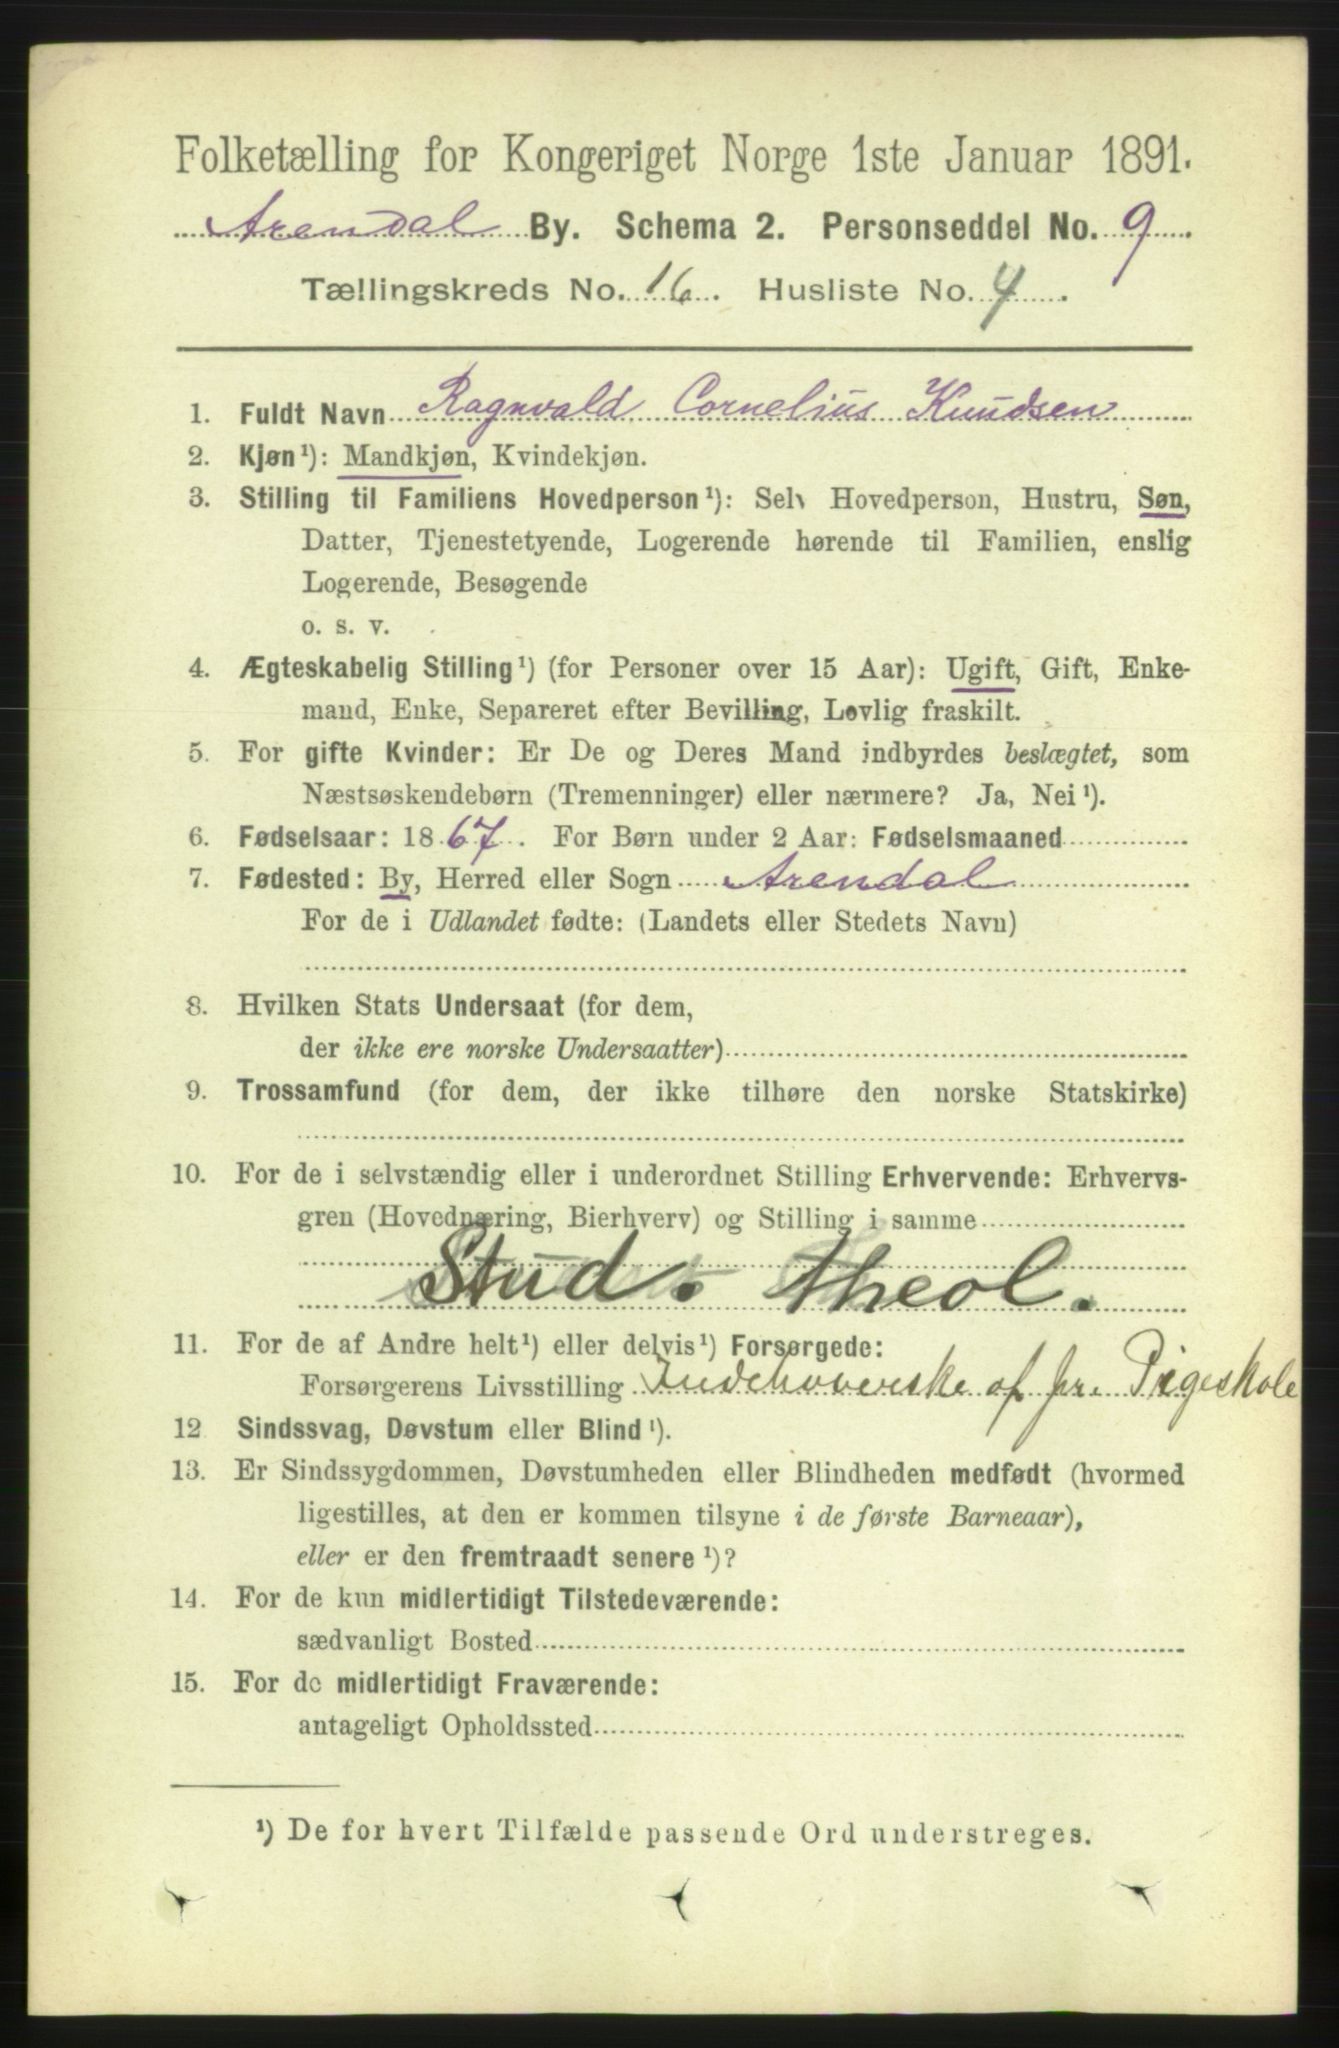 Folketælling for Kongeriget Norge 1ste Januar 1891.
Arendal By. Schema 2. Personseddel No. 9
Tællingskreds No. 16. Husliste No. 4.
1. Fuldt Navn Ragnvald Cornelius Knudsen
2. Kjøn¹): Mandkjøn, Kvindekjøn.
3. Stilling til Familiens Hovedperson¹): Selv Hovedperson, Hustru, Søn,
Datter, Tjenestetyende, Logerende hørende til Familien, enslig
Logerende, Besøgende
o. s. v.
4. Ægteskabelig Stilling¹) (for Personer over 15 Aar): Ugift, Gift, Enke-
mand, Enke, Separeret efter Bevilling, Lovlig fraskilt.
5. For gifte Kvinder: Er De og Deres Mand indbyrdes beslægtet, som
Næstsøskendebørn (Tremenninger) eller nærmere? Ja, Nei¹).
6. Fødselsaar: 1867. For Børn under 2 Aar: Fødselsmaaned
7. Fødested: By, Herred eller Sogn Arendal
For de i Udlandet fødte: (Landets eller Stedets Navn)
8. Hvilken Stats Undersaat (for dem,
der ikke ere norske Undersaatter)
9. Trossamfund (for dem, der ikke tilhøre den norske Statskirke)
10. For de i selvstændig eller i underordnet Stilling Erhvervende: Erhvervs-
gren (Hovednæring, Bierhverv) og Stilling i samme
Stud. theol.
11. For de af Andre helt¹) eller delvis¹) Forsørgede:
Forsørgerens Livsstilling Indehaverske af pr. Pigeskole
12 Sindssvag, Døvstum eller Blind¹).
13. Er Sindssygdommen, Døvstumheden eller Blindheden medfødt (hvormed
ligestilles, at den er kommen tilsyne i de første Barneaar),
eller er den fremtraadt senere¹)?
14. For de kun midlertidigt Tilstedeværende:
sædvanligt Bosted
15. For de midlertidigt Fraværende:
antageligt Opholdssted
¹) De for hvert Tilfælde passende Ord understreges.